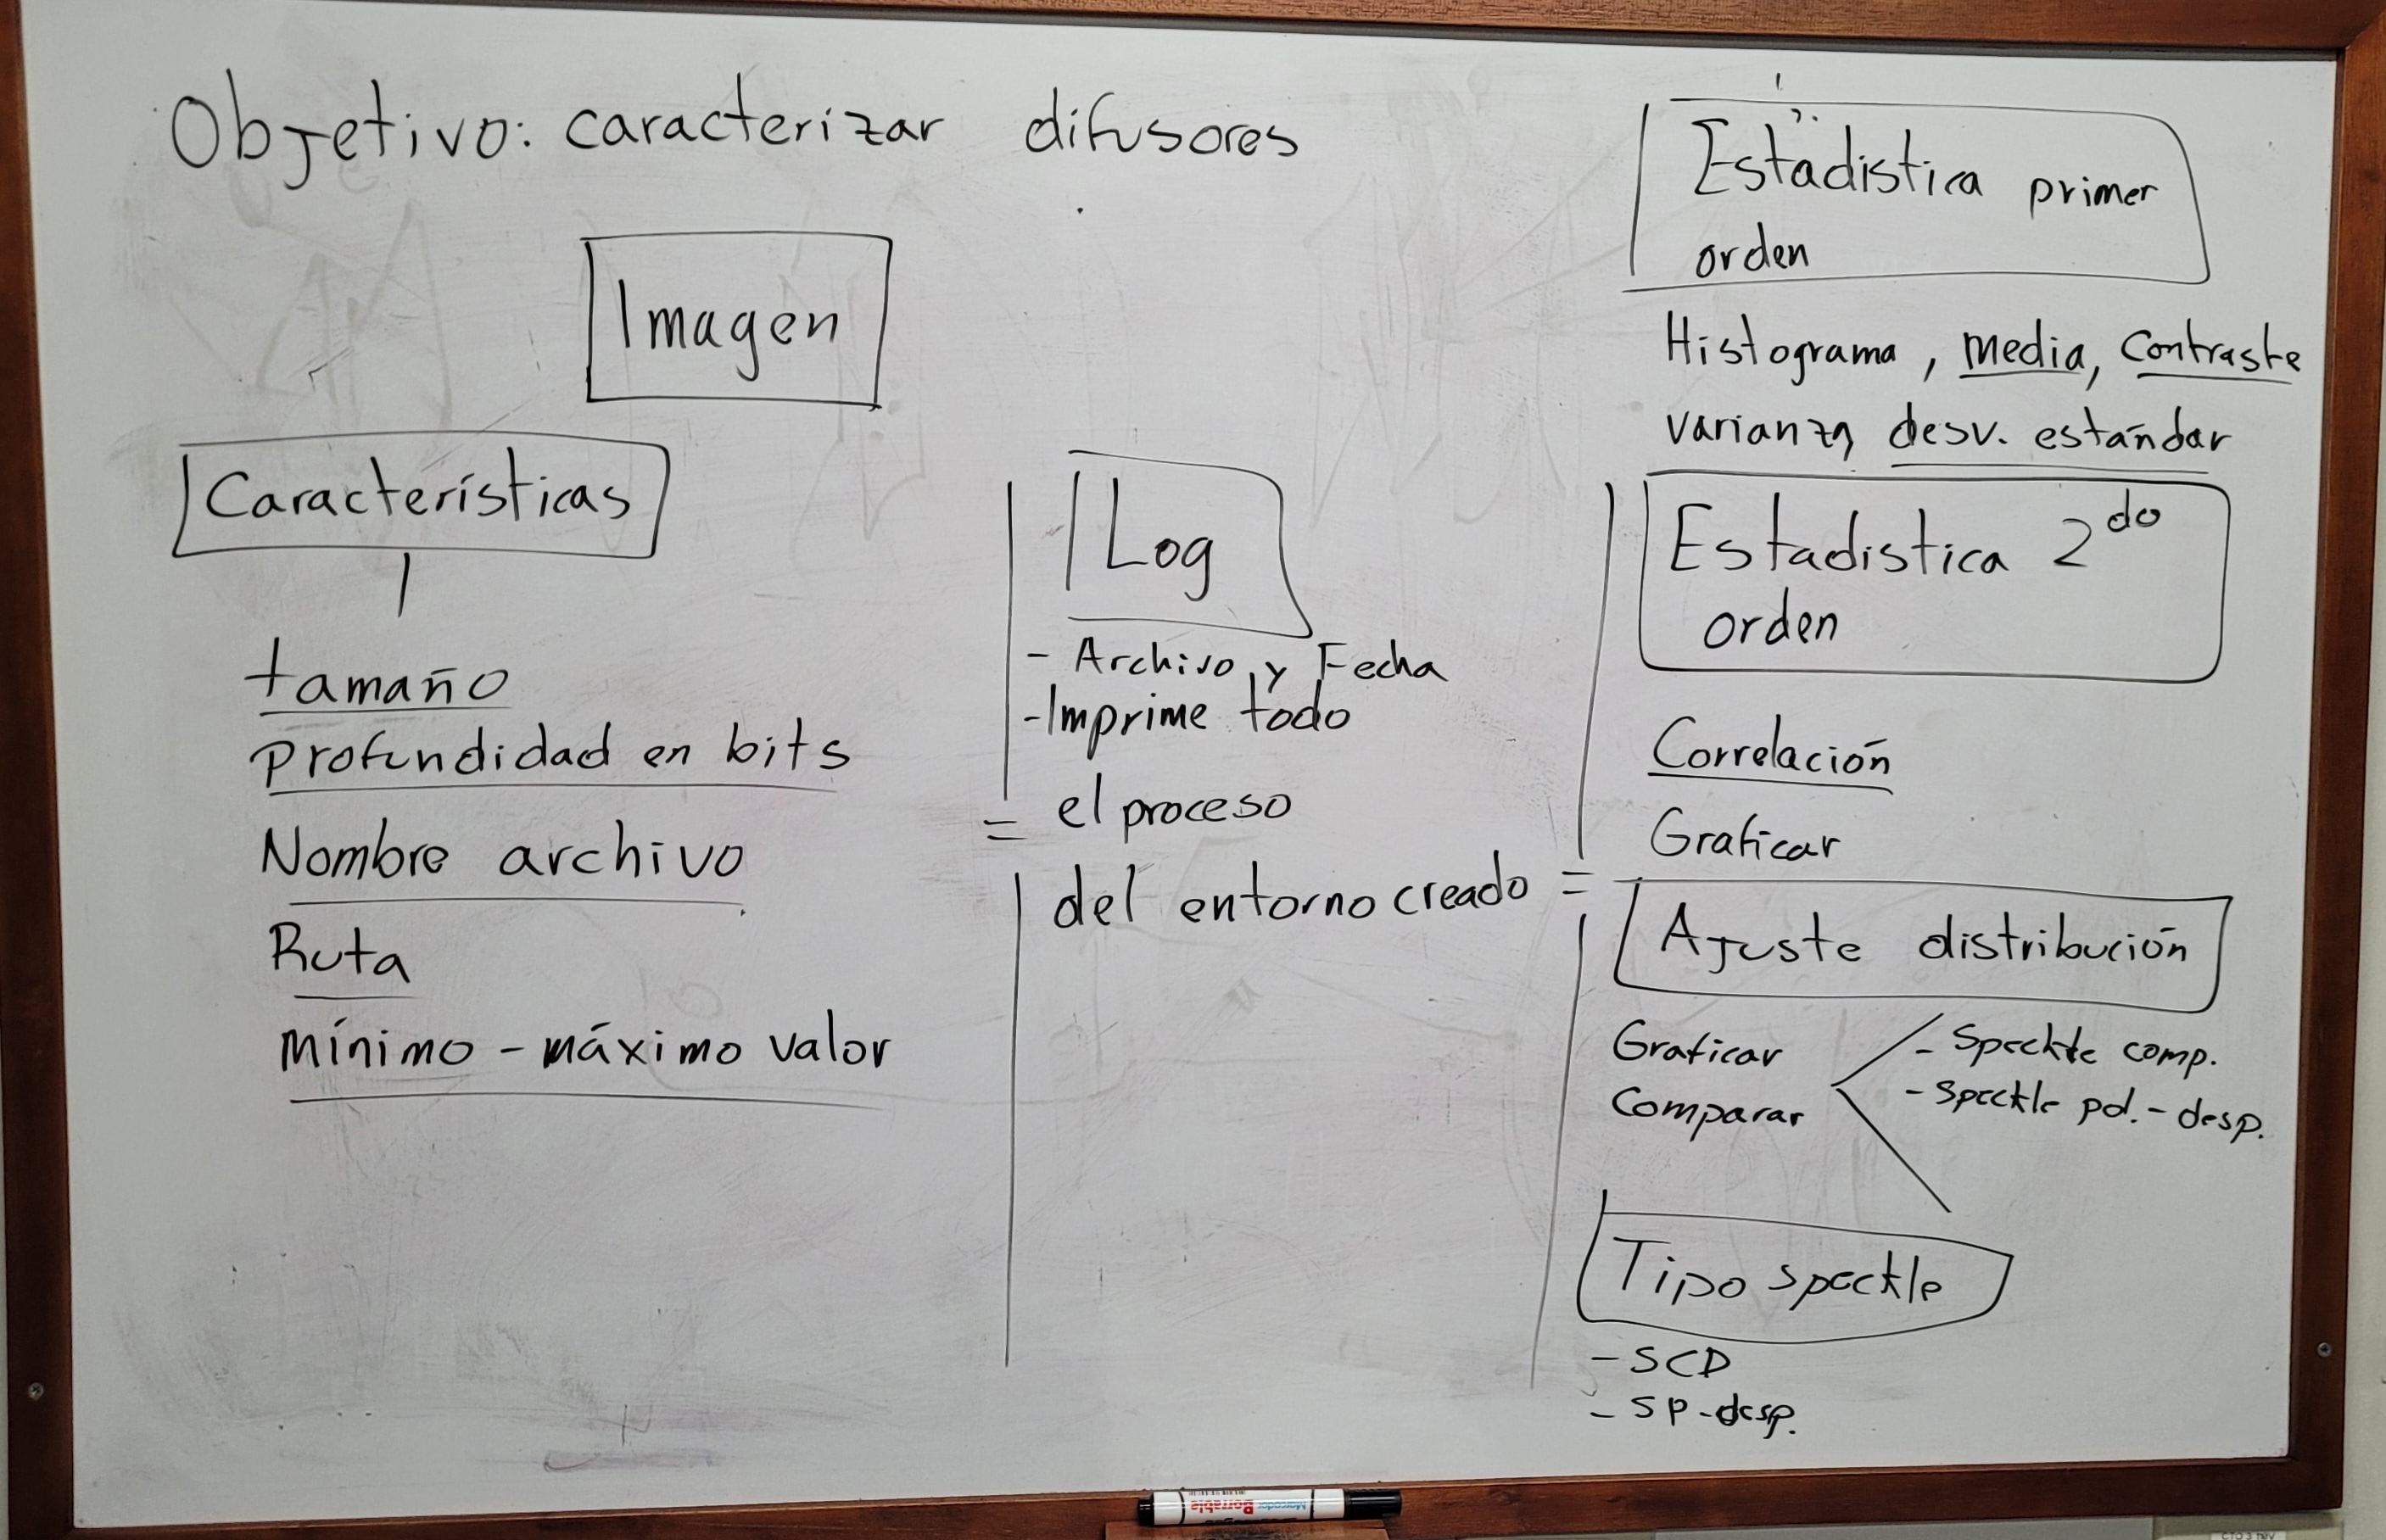 Objetivo: caracterizar difusores
Imagen
Características
tamaño
profundidad en bits
Nombre archivo
Ruta
mínimo - máximo valor
Log
- Archivo y Fecha
- Imprime todo
el proceso
del entorno creado
Estadistica primer
orden
Histograma, media, contraste
varianza, desv. estándar
Estadistica 2do
orden
Correlación
Graficar
Ajuste distribución
Graficar
Comparar
- Speckle comp.
- Speckle pol. - desp.
Tipo speckle
- SCD
- SP-desp.
Marcador
Borrable